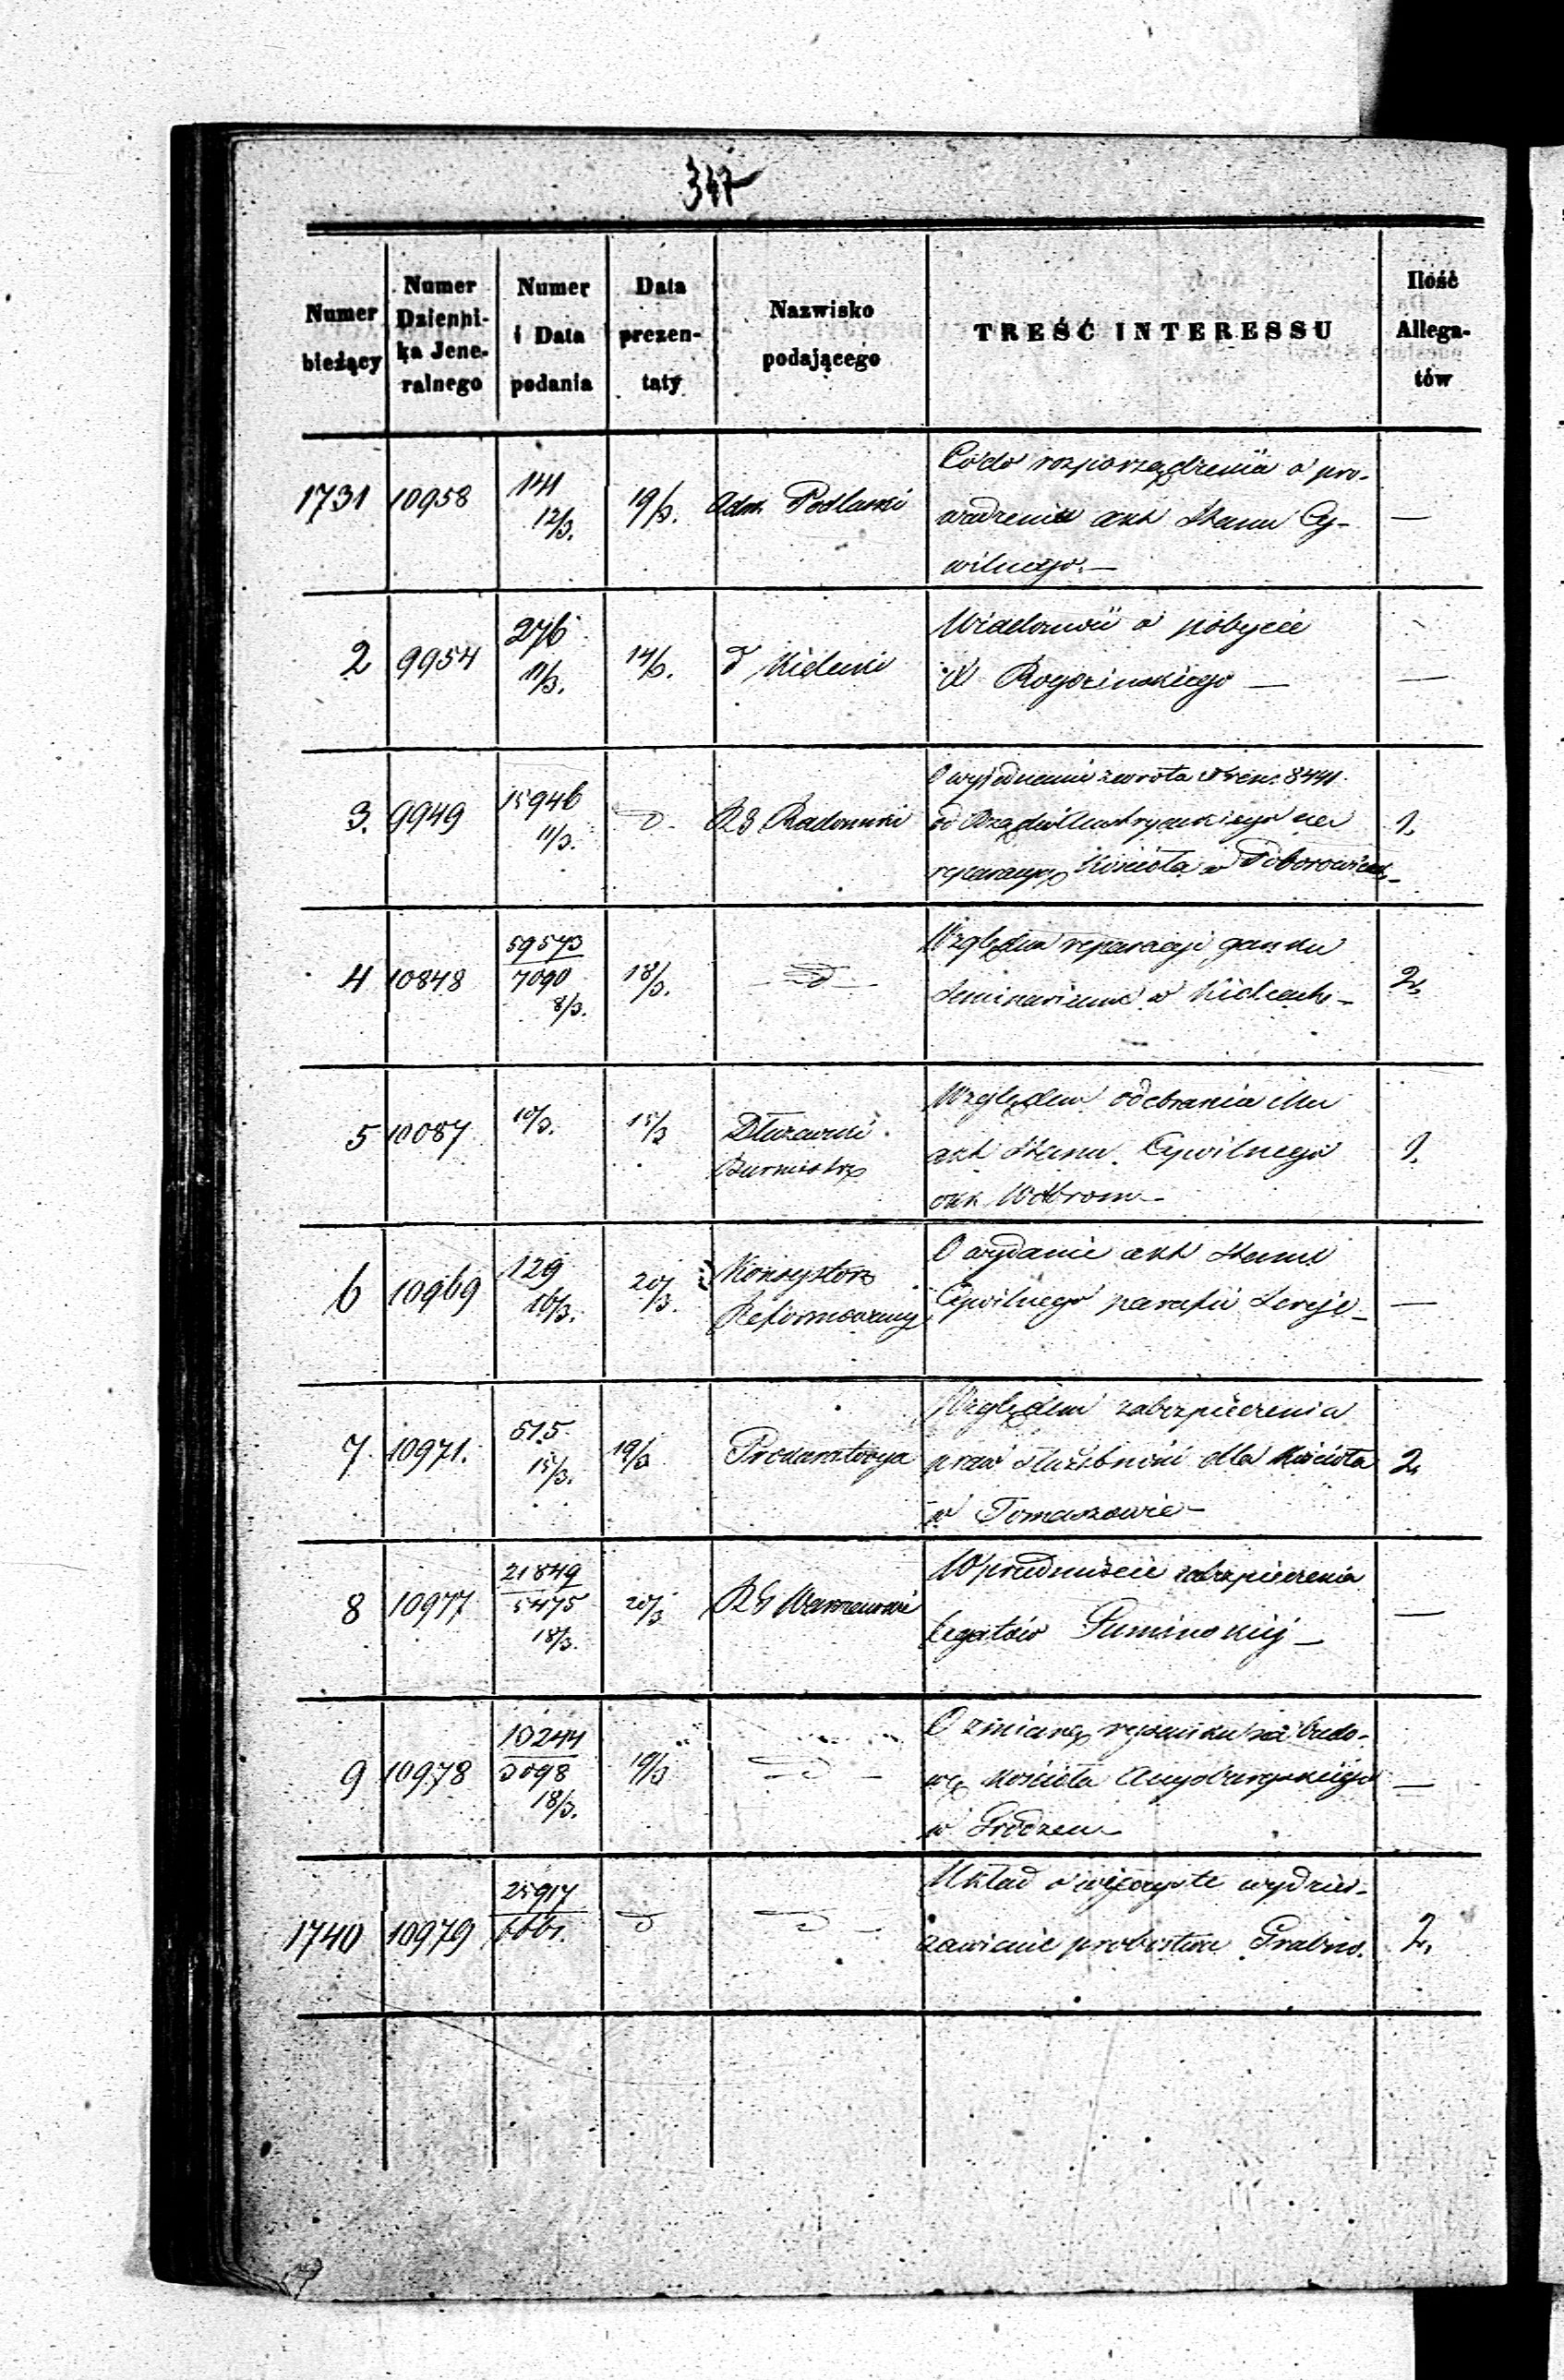 347
Numer bieżący | Numer Dzienni-ka Jene-ralnego | Numer i Data podania | Data prezen-taty | Nazwisko podającego | TREŚĆ INTERESSU | Ilość Allega-tów
1731 | 10958 | 141 12/3. | 19/3. | Adm. Podlaski | Co do rozporządzenia o pro-
wadzeniu akt Stanu Cy- | —
wilnego. —
2 | 9954 | 276 11/3. | 14/3. | d Kielecki | Wiadomość o pobycie
X Rogozinskiego — | —
3. | 9949 | 15946 11/3. | d. | RG Radomski | O wyjednanie zwrotu 8441.
od Rządu Austryackiego na | 1.
reparacyą Kościoła w
4 | 10848 | 59573 7090 8/3. | 18/3. | — d — | Względem reparacji ganku
Seminarium w Kielcach — | 2,
5 | 10087 | 10/3. | 15/3 | Burmistrz | Względem odebrania mu
akt Stanu Cywilnego | 1.
6 | 10969 | 129 16/3. | 20/3. | Konsystorz Reformowany | O wydanie akt Stanu
Cywilnego parafii Sereje — | —
7 | 10971. | 515. 15/3. | 19/3 | Prokuratorya | Względem zabezpieczenia
praw Służebności dla Kościoła | 2,
w Tomaszowie —
8 | 10977 | 21849 5475 18/3. | 20/3 | RG Warszawski | W przedmiocie zabezpieczenia
legatów — | —
9 | 10978 | 10244 3098 18/3. | 19/3 | — d — | O zmianę rysunku na budo-
wę Kościoła Augsburgskiego | —
w
1740 | 10979 | 25917 | d | — d — | Układ o wieczyste wydzier-
żawienie probostwa | 2,